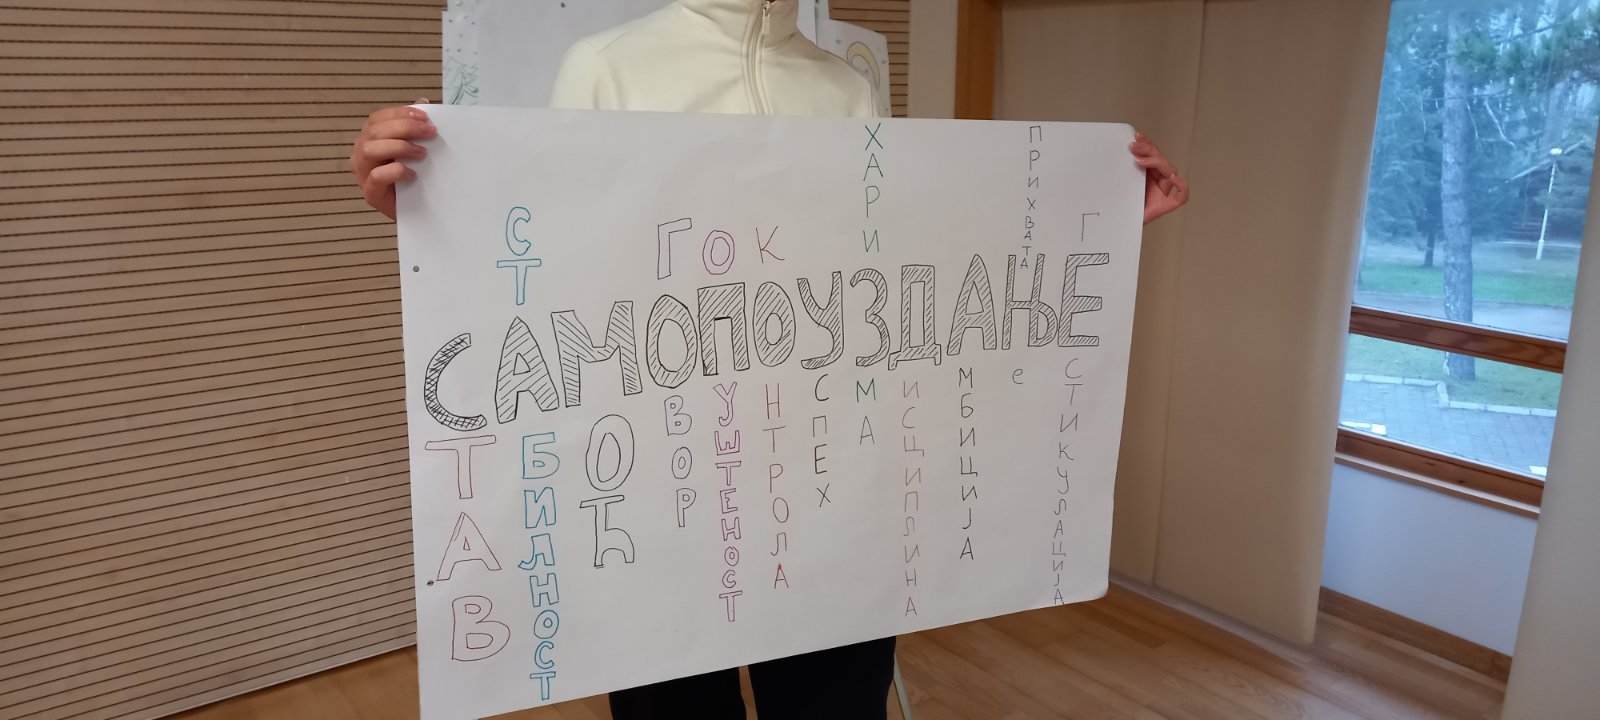 САМОПОУЗДАЊЕ
СТАВ
СТАБИЛНОСТ
МОЋ
ГОВОР
ОПУШТЕНОСТ
КОНТРОЛА
УСПЕХ
ХАРИЗМА
ДИСЦИПЛИНА
АМБИЦИЈА
ПРИХВАТАЊе
ГЕСТИКУЛАЦИЈА